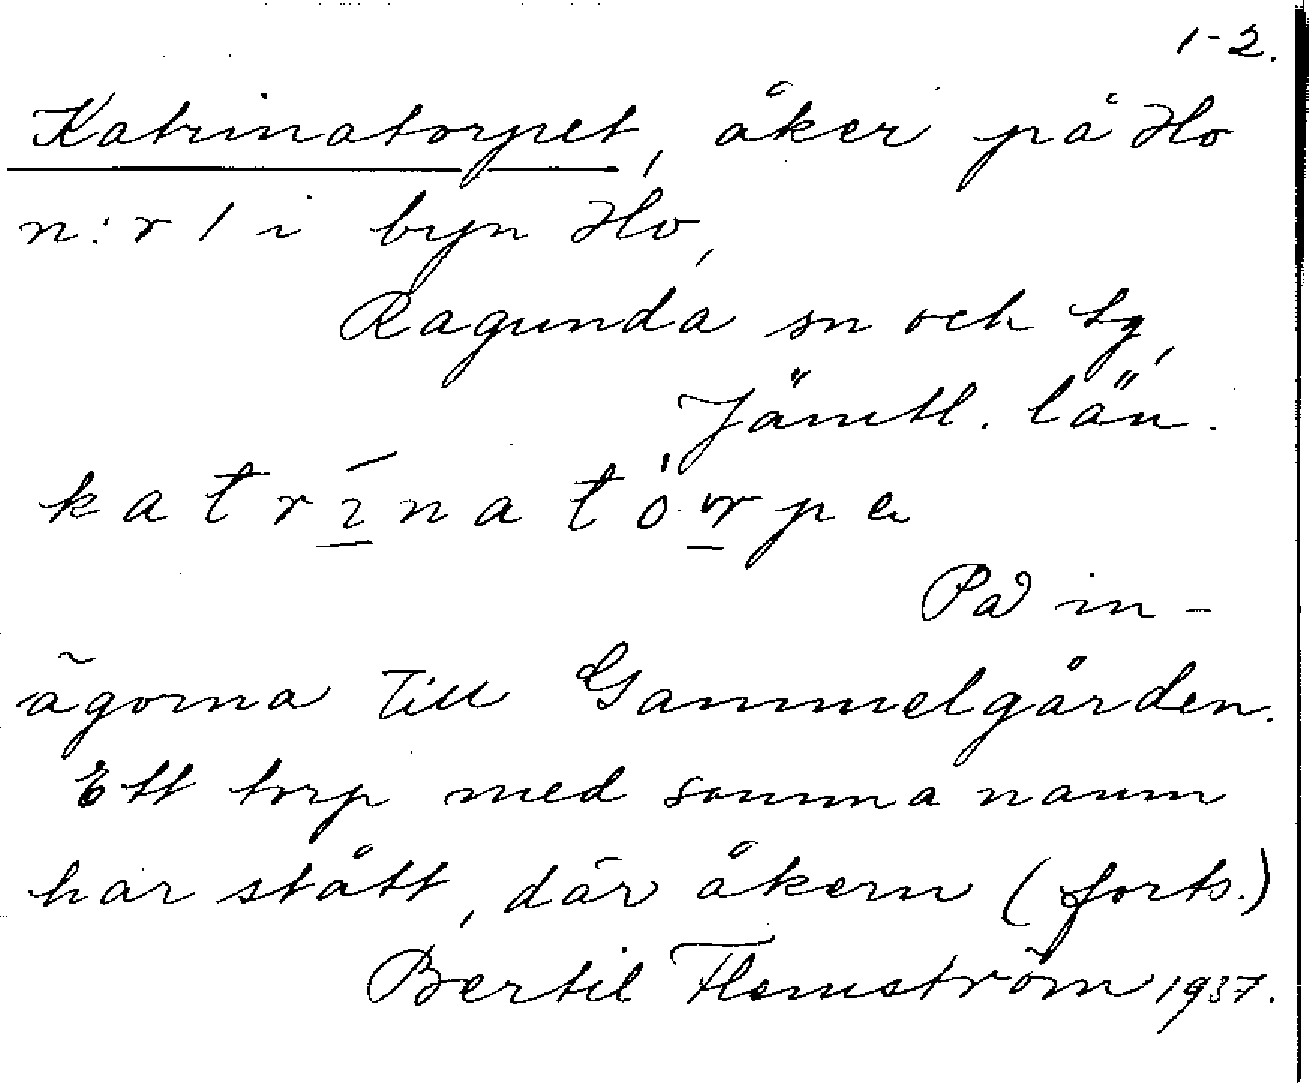 1-2.
Katrinatorpet, åker på Ho
n:r 1 i byn Ho,
Ragunda sn och tg,
Jämtl. län.
katrīnatörpe
På in-
ägorna till Gammelgården.
Ett torp med samma namn
har stått, där åkern (forts.)
Bertil Flemström 1937.